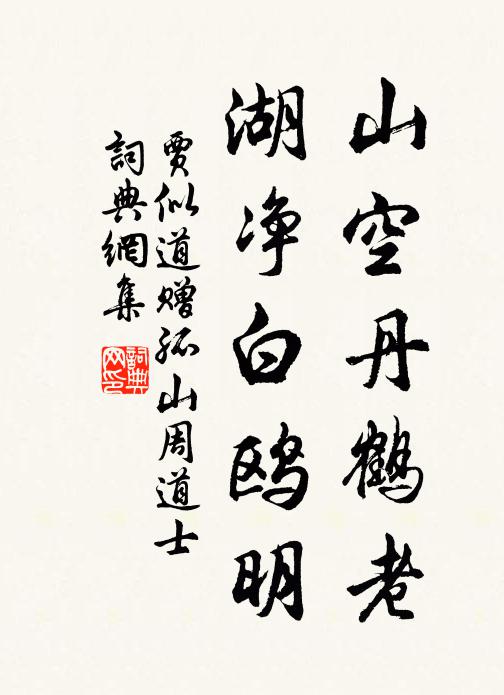 山空丹鶴老
湖净白鸥明
賈似道赠孤山周道士
詞典網集
詞典网印